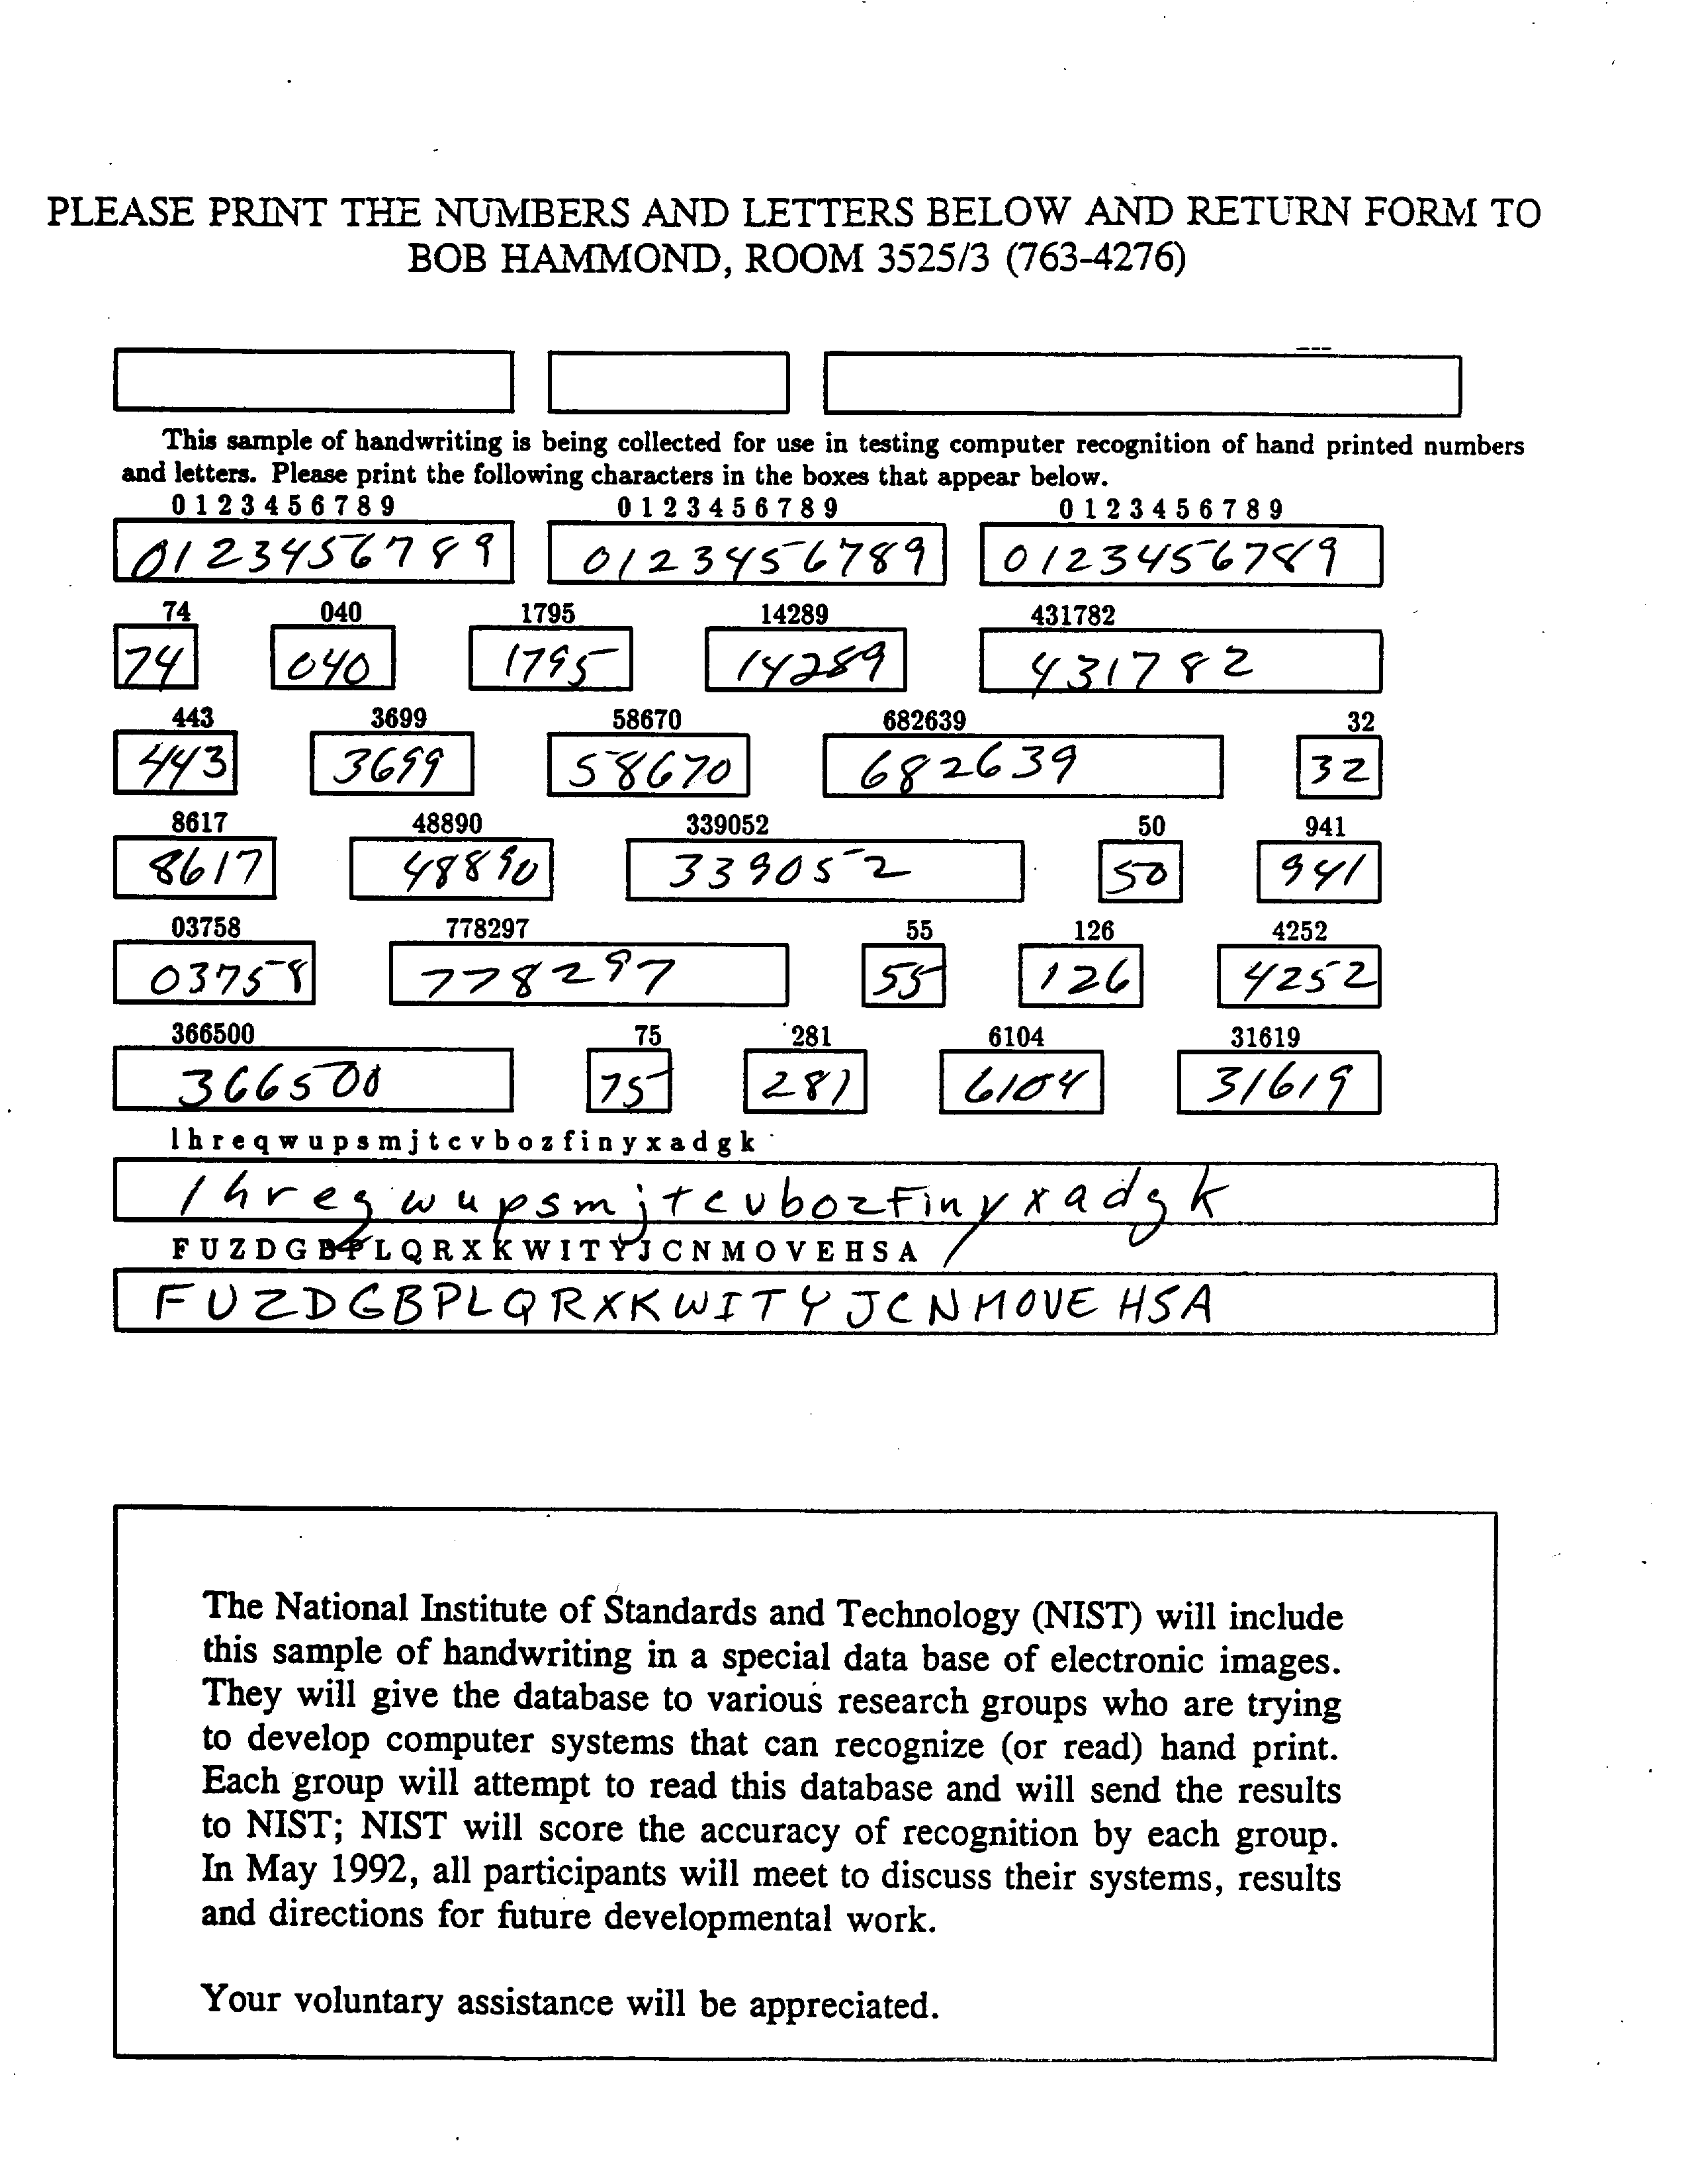 PLEASE PRINT THE NUMBERS AND LETTERS BELOW AND RETURN FORM TO
BOB HAMMOND, ROOM 3525/3 (763-4276)
This sample of handwriting is being collected for use in testing computer recognition of hand printed numbers
and letters. Please print the following characters in the boxes that appear below.
0 1 2 3 4 5 6 7 8 9 0 1 2 3 4 5 6 7 8 9 0 1 2 3 4 5 6 7 8 9
0123456789 0123456789 0123456789
74 040 1795 14289 431782
74 040 1795 14289 431782
443 3699 58670 682639 32
443 3699 58670 682639 32
8617 48890 339052 50 941
8617 48890 339052 50 941
03758 778297 55 126 4252
03758 778297 55 126 4252
366500 75 281 6104 31619
366500 75 281 6104 31619
l h r e q w u p s m j t c v b o z f i n y x a d g k
l h r e q w u p s m j t c v b o z f i n y x a d g k
F U Z D G B P L Q R X K W I T Y J C N M O V E H S A
F U Z D G B P L Q R X K W I T Y J C N M O V E H S A
The National Institute of Standards and Technology (NIST) will include
this sample of handwriting in a special data base of electronic images.
They will give the database to various research groups who are trying
to develop computer systems that can recognize (or read) hand print.
Each group will attempt to read this database and will send the results
to NIST; NIST will score the accuracy of recognition by each group.
In May 1992, all participants will meet to discuss their systems, results
and directions for future developmental work.
Your voluntary assistance will be appreciated.